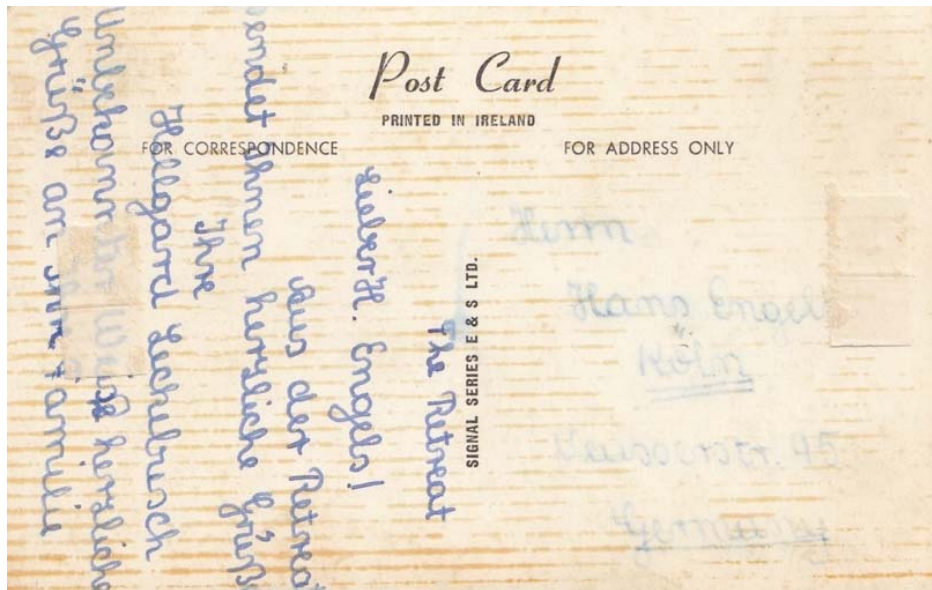 Post Card
PRINTED IN IRELAND
FOR CORRESPONDENCE
FOR ADDRESS ONLY
SIGNAL SERIES E & S LTD.
The Retreat
Lieber H. Engels!
Aus der Retreat
sendet Ihnen herzliche Grüße
Ihre
Hellgard
Unbekannter Weise herzliche
Grüße an Ihre Familie
Herrn
Hans Engels
Köln
str. 45
Germany